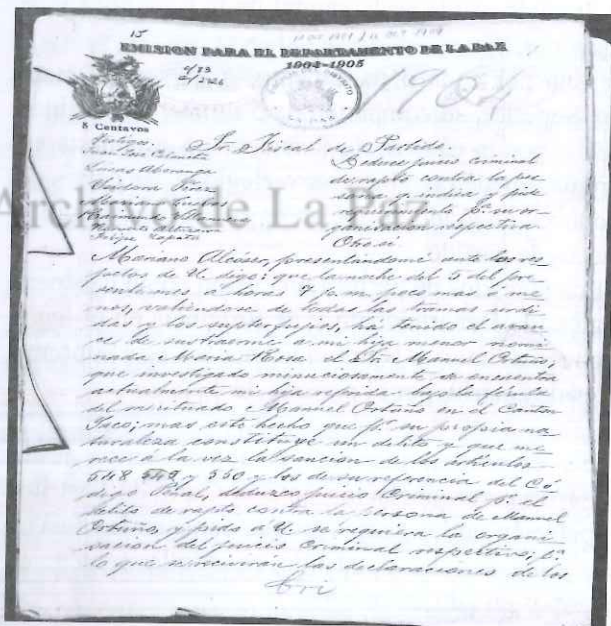 15
EMISION PARA EL DEPARTAMENTO DE LA PAZ
1904-1905
904
5 Centavos
Testigos.
Lucas
Isidora Perez
Maria
Raimundo
Felipe Zapata
Sr. Fiscal de Partido
Deduce juicio criminal
de rapto contra la per
sona que indica y pide
requerimiento pª su or-
ganizacion respectiva
Otro si.
Archivo de La Paz
Mariano Alcoser, presentándome ante los res-
petos de U. digo: que la noche del 5 del pre-
sente mes a horas 7 p.m. poco mas ó me
nos, valiendose de todas las tramas urdi-
das y los supterfujios, há tenido el avan-
ce de sustraerme a mi hija menor nomi
nada Maria Rosa el Sr. Manuel Ortuño,
que investigado minuciosamente, se encuentra
actualmente mi hija referida bajo la férula
del merituado Manuel Ortuño en el Canton
mas este hecho que pr. su propia na-
turaleza constituye un delito y que me
rece á la vez la sancion de los artículos
548 549 y 550 y los de su referencia del Có
digo Penal, deduzco juicio Criminal pr. el
delito de rapto contra la persona de Manuel
Ortuño, y pido a U. se requiera la organi
zacion del juicio Criminal respectivo, pª
lo que se recivirán las declaraciones de los